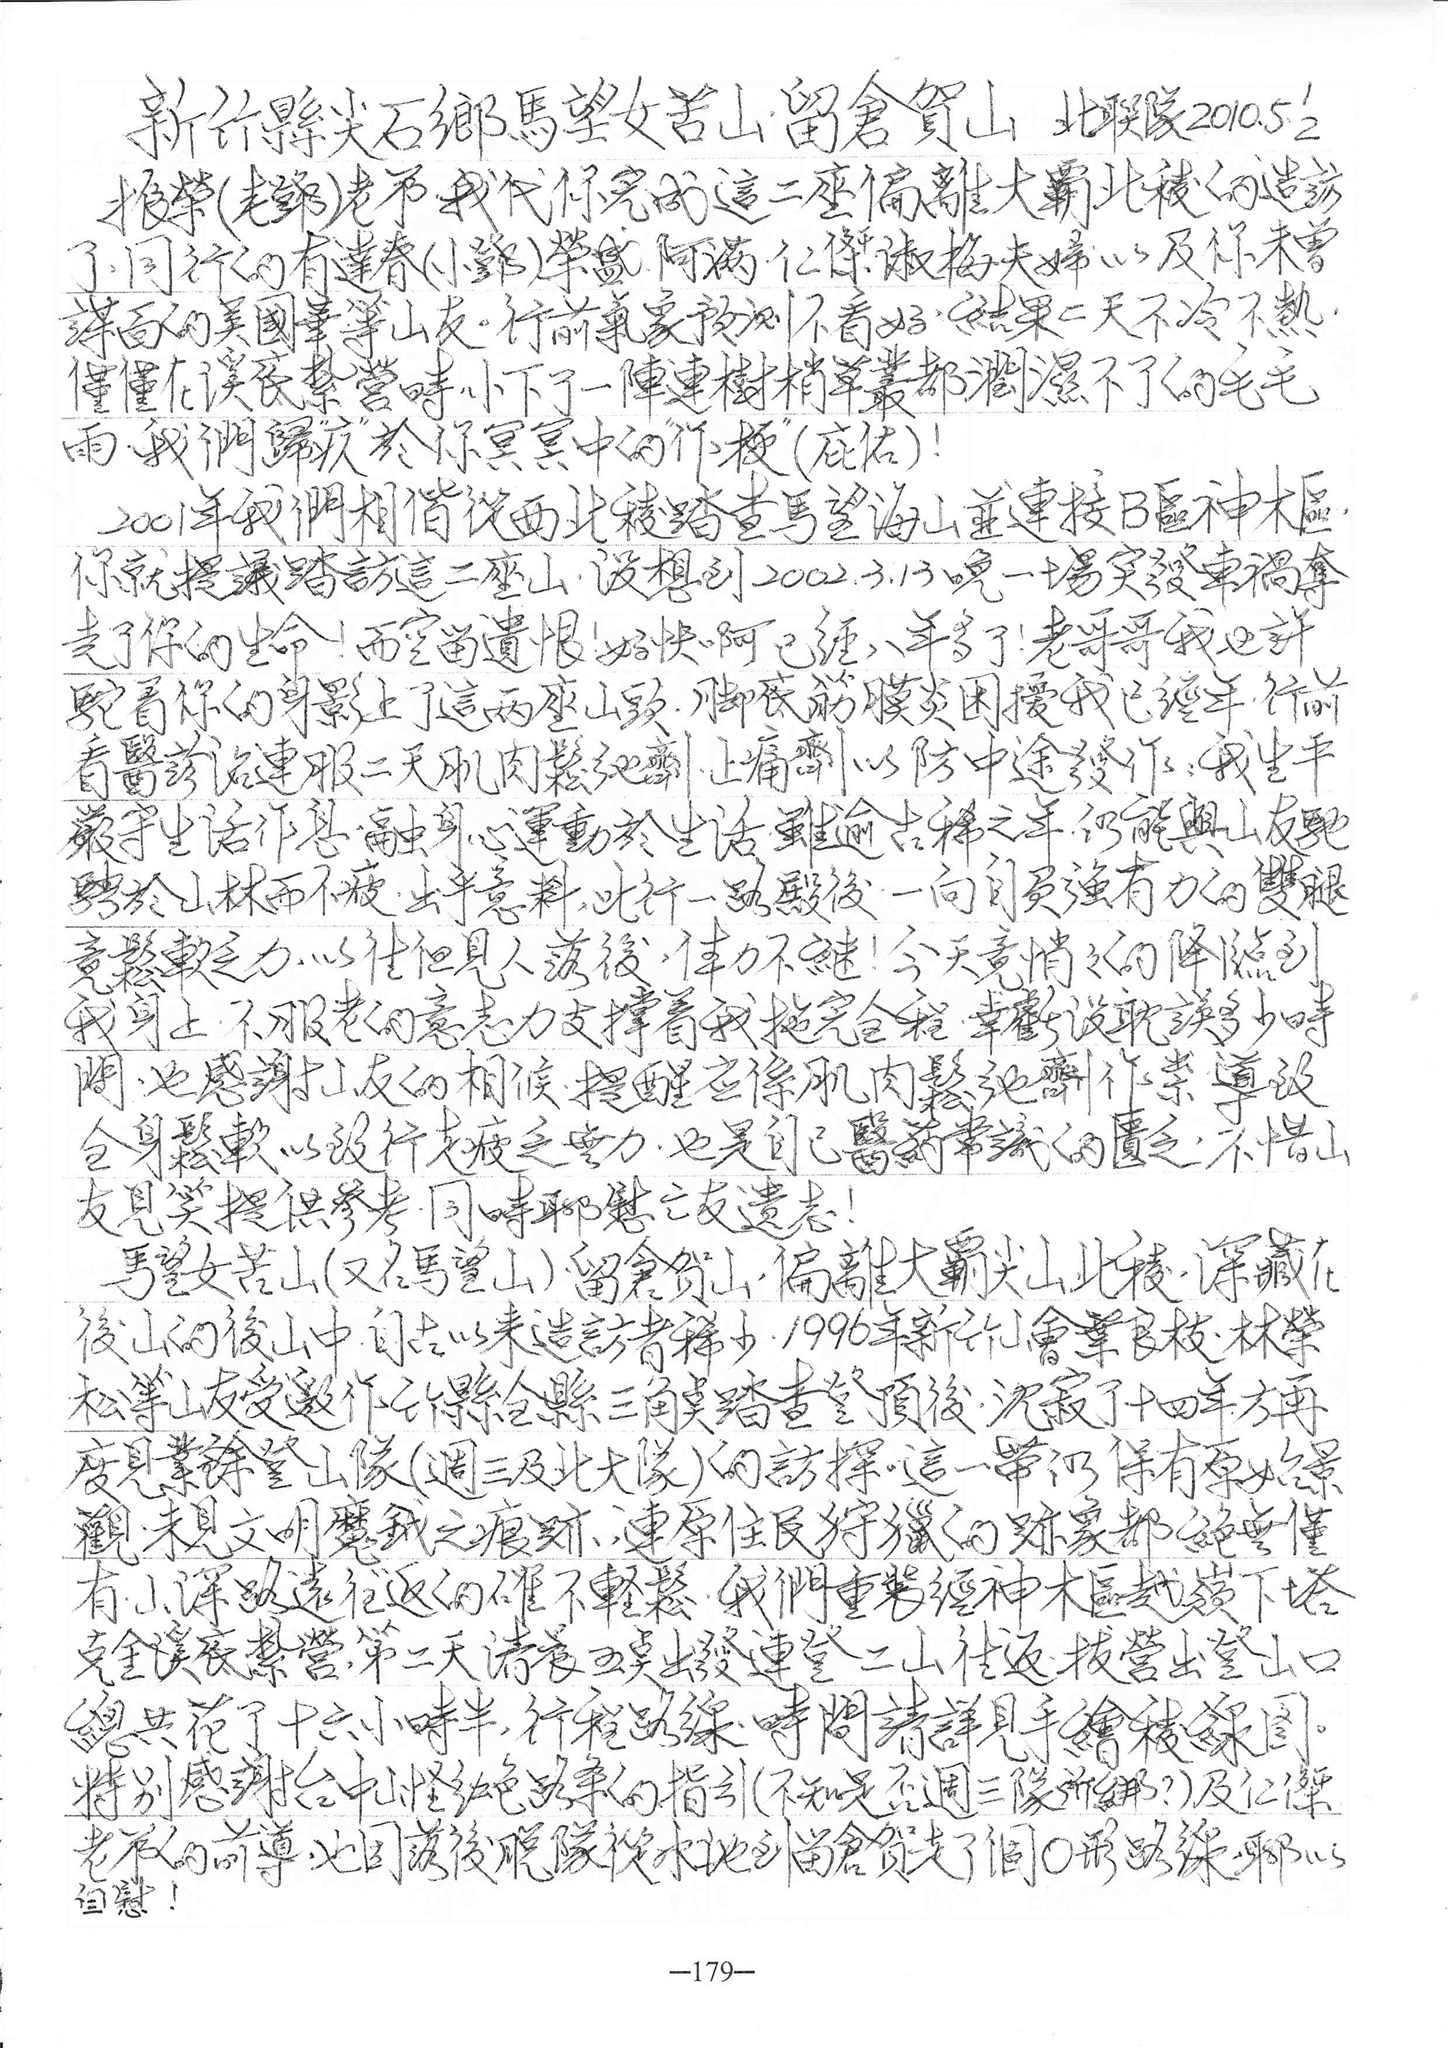 新竹縣尖石鄉馬望女苦山.留倉賀山 北联隊2010.5.1/2
振榮(老鄧)老弟.我代你完成這二座偏離大霸北稜的造訪
了.同行的有達春(小鄧).榮盛.阿满.仁傑淑梅夫婦以及你未曾
謀面的美國華等山友.行前氣象預測不看好.結果二天不冷不熱.
僅僅在溪底紮營時.小下了一陣連樹梢草叢都潤濕不了的毛毛
雨.我們歸"疚"於你冥冥中的"作梗"(庇佑)!
2001年我們相偕從西北稜踏查馬望海山並連接B區神木區.
你就提議踏訪這二座山.没想到2002.3.13晚一場突發車禍奪
走了你的生命!而空留遺恨!好快啊已經八年多了!老哥哥我也許
駝着你的身影上了這两座山頭.脚底筋膜炎困擾我已經年.行前
看醫診治連服二天肌肉鬆弛劑.止痛劑以防中途發作.我生平
嚴守生活作息.融身心運動於生活.雖逾古稀之年.仍能與山友馳
騁於山林而不疲.出乎意料.此行一路殿後.一向自負強有力的雙腿
竟鬆軟乏力.以往但見人落後.体力不継!今天竟悄々的降臨到
我身上.不服老的意志力支撐着我拖完全程.幸虧没耽誤多少時
間.也感謝山友的相候.提醒应係肌肉鬆弛劑作祟.導致
全身鬆軟以致行走疲乏無力.也是自己醫药常識的匱乏.不惜山
友見笑提供參考.同時聊慰亡友遺志!
馬望女苦山(又名馬望山).留倉賀山.偏離大霸尖山北稜.深藏在
後山的後山中.自古以来造訪者稀少.1996年新竹山會葉良枝.林榮
松等山友受邀作竹縣全縣三角點踏查登頂後.沈寂了十四年.方再
度見業餘登山隊(週三及北大隊)的訪探.這一帶仍保有原始景
觀.未見文明魔鉞之痕跡.連原住民狩獵的跡象都絕無僅
有.山深路遠.往返的確不輕鬆.我們重裝經神木區越嶺下塔
克金溪底紮營.第二天清晨五點出發連登二山往返.拔營出登山口
總共花了十六小時半.行程路線.時間請詳見手繪稜線图.
特別感謝台中山怪红色路條的指引(不知是否週三隊所綁?)及仁傑
老弟的前導.也因落後脱隊從水池到留倉賀走了個O形路線.聊以
自慰!
—179—